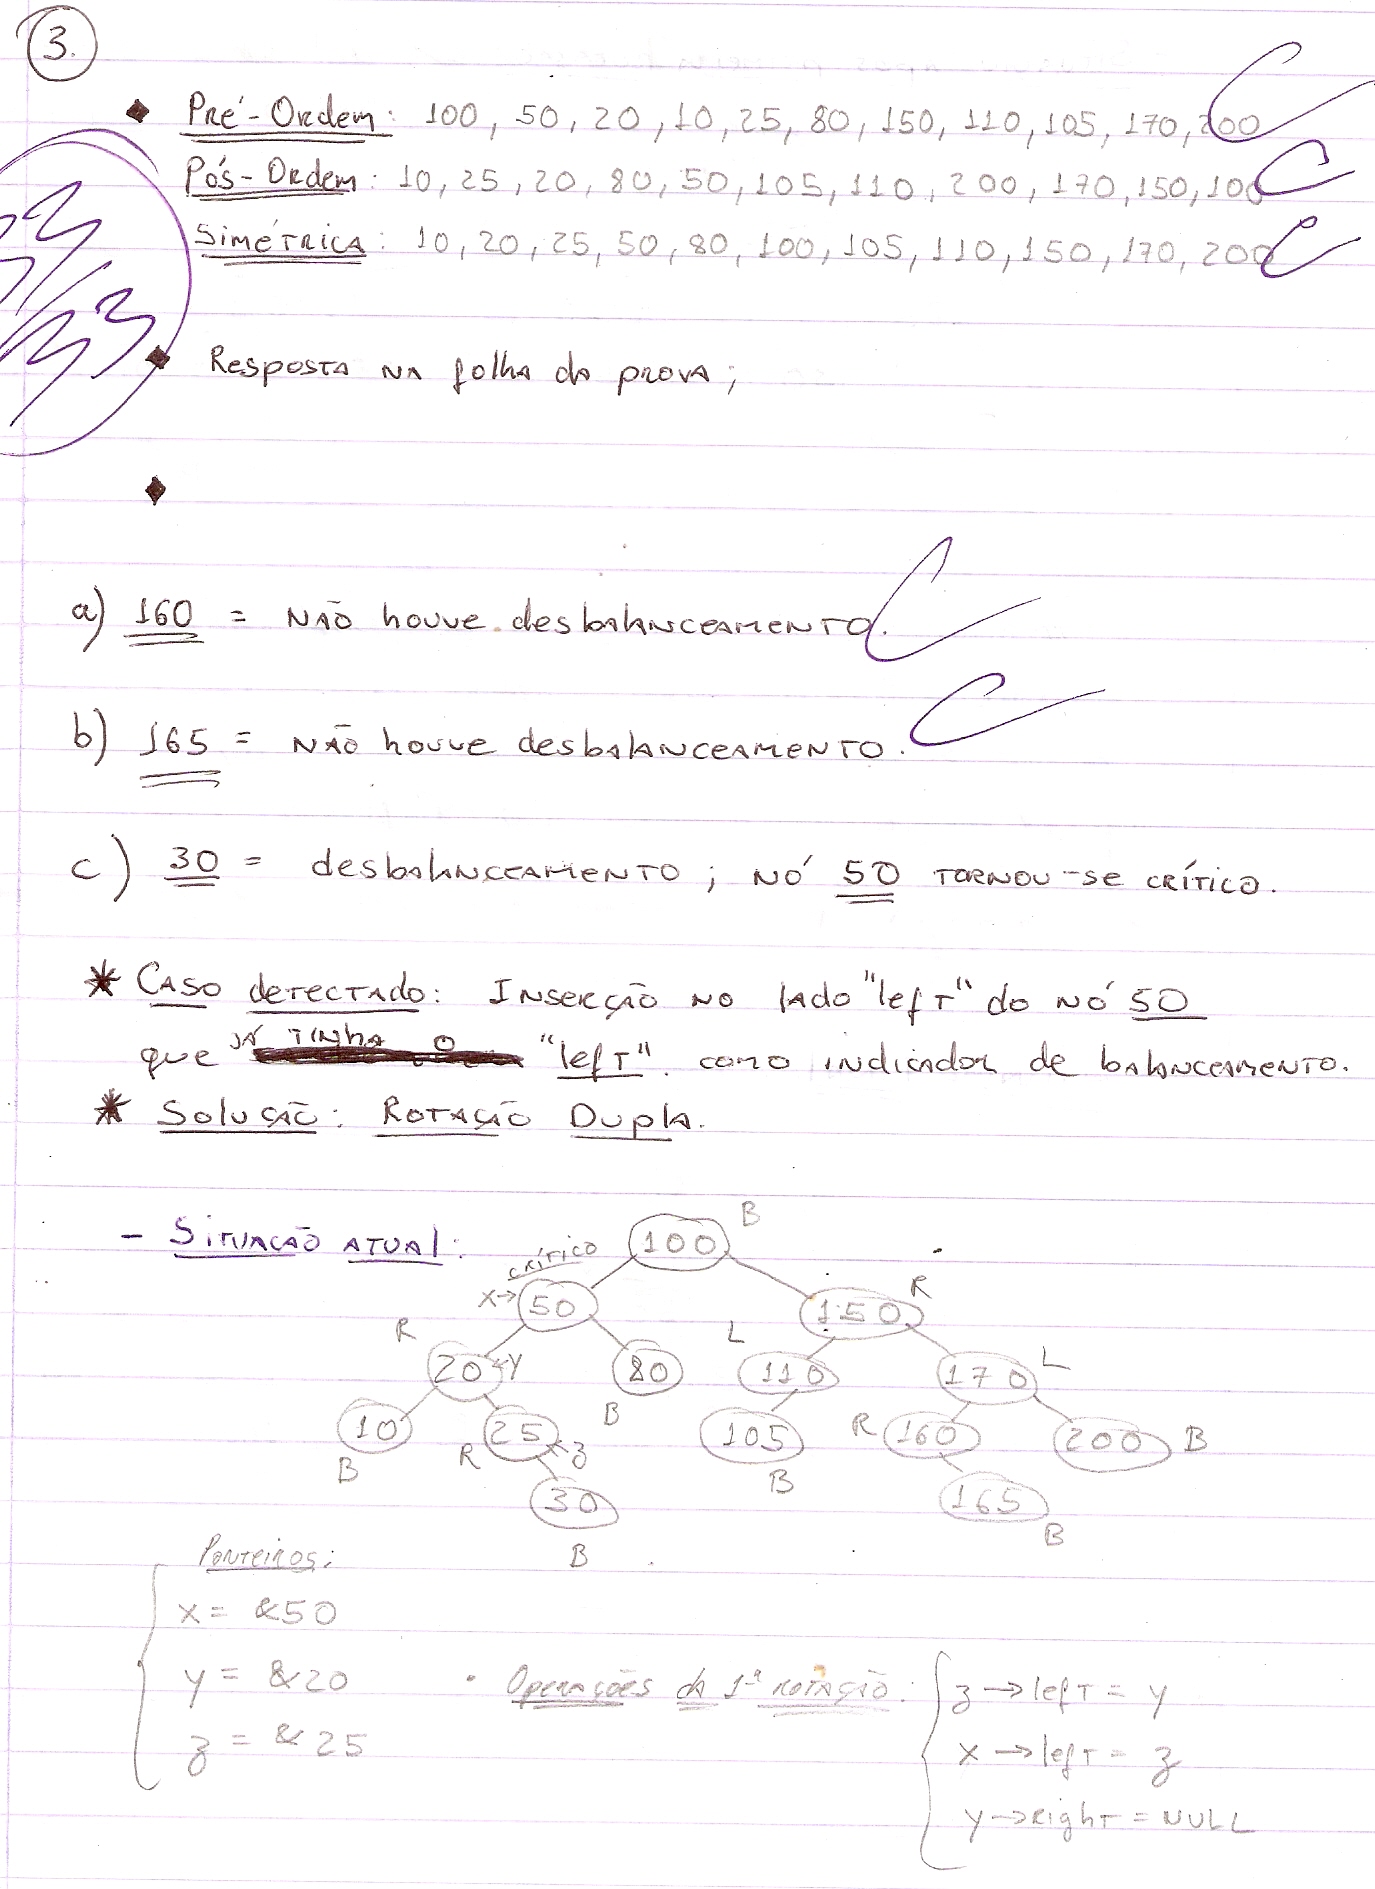 3.
Pré-Ordem: 100, 50, 20, 10, 25, 80, 150, 110, 105, 170, 200
Pós-Ordem: 10, 25, 20, 80, 50, 105, 110, 200, 170, 150, 100
Simétrica: 10, 20, 25, 50, 80, 100, 105, 110, 150, 170, 200
Resposta na folha da prova;
a) 160 = Não houve desbalanceamento.
b) 165 = Não houve desbalanceamento.
c) 30 = desbalanceamento; nó 50 tornou-se crítico.
* Caso detectado: Inserção no lado "left" do nó 50
que já tinha o "left" como indicador de balanceamento.
* Solução: Rotação Dupla.
- Situação atual:
100 B
crítico
X→ 50 150 R
R 20 ←y 80 B L 110 170 L
10 B R 25 ←z 105 B R 160 200 B
30 B 165 B
Ponteiros:
x = &50
y = &20
z = &25
• Operações da 1ª rotação:
z→left = y
x→left = z
y→right = NULL